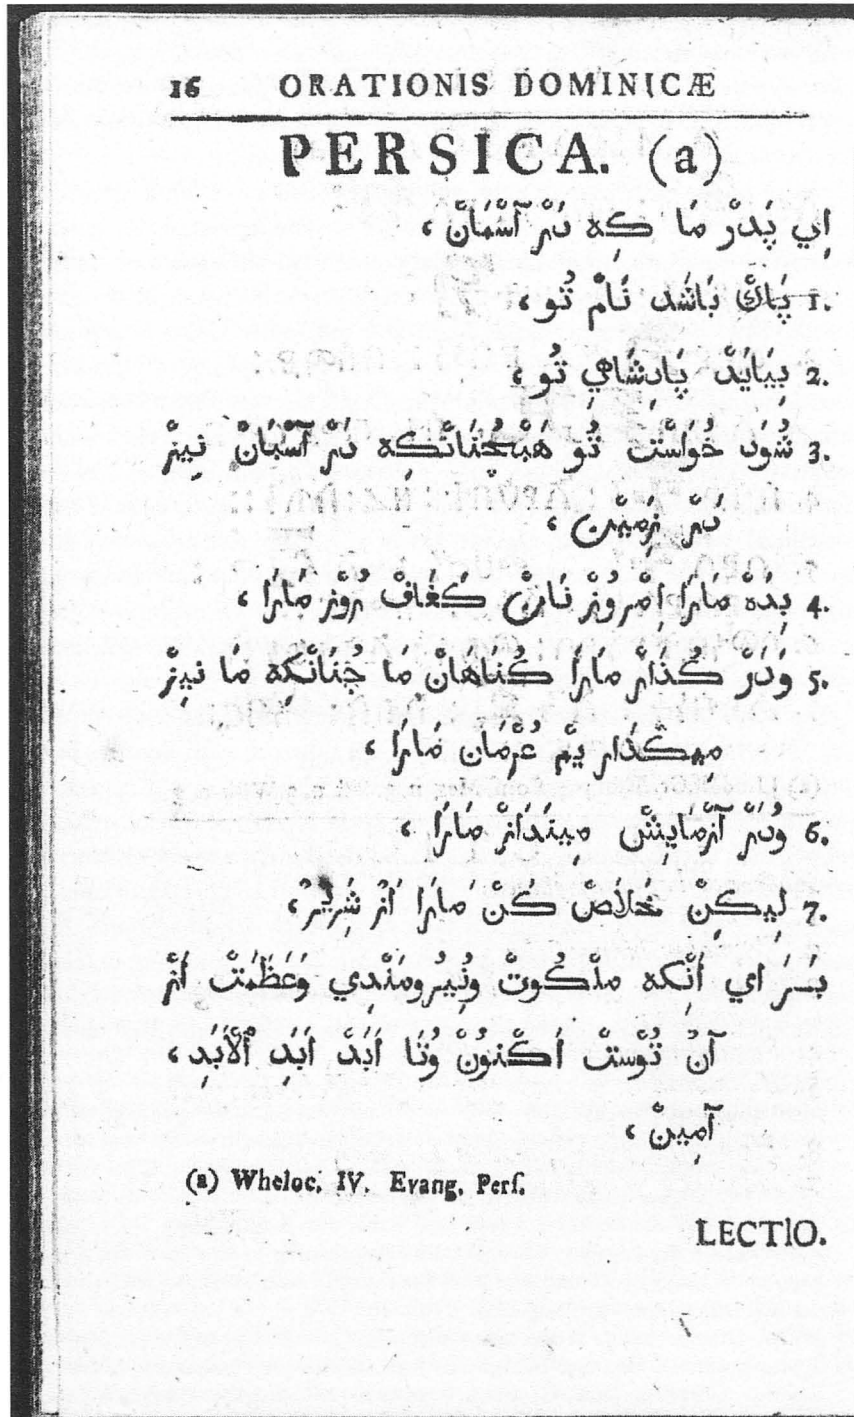 16 ORATIONIS DOMINICÆ
PERSICA. (a)
اِي پَدرْ مَا كِه دَرْ آسْمَانْ ،
1. پَاكْ بَاشَد نَامْ تُو ،
2. بِيَايَدْ پَادِشَاهِي تُو ،
3. شُوَد خُوَاسْت تُو هَمْچُنَانْكِه دَرْ آسْمَانْ نِيزْ
دَرْ زِمِيْن ،
4. بِدَهْ مَارَا اِمْرُوزْ نَانْ كَفَافْ رُوْز مَارَا ،
5. وَدَرْ كُذَارْ مَارَا كُنَاهَانْ مَا چُنَانْكِه مَا نِيزْ
مِيكْذَار يْم عُرْمَان مَارَا ،
6. وُدَرْ آزْمَايِشْ مِينْدَازْ مَارَا ،
7. لِيكِنْ خَلَاصْ كُنْ مَارَا اَزْ شَرِيرْ ،
بَــرَاي اَنْكه ملْكُوتْ وَنُيرُومَنْدِي وَعَظَمَتْ اَزْ
آنْ تُوْستْ اَكْنوُنْ وُتَا اَبَدْ اَبَدِ اْلأَبَدِ ،
آمِينْ ،
(a) Wheloc. IV. Evang. Perſ.
LECTIO.